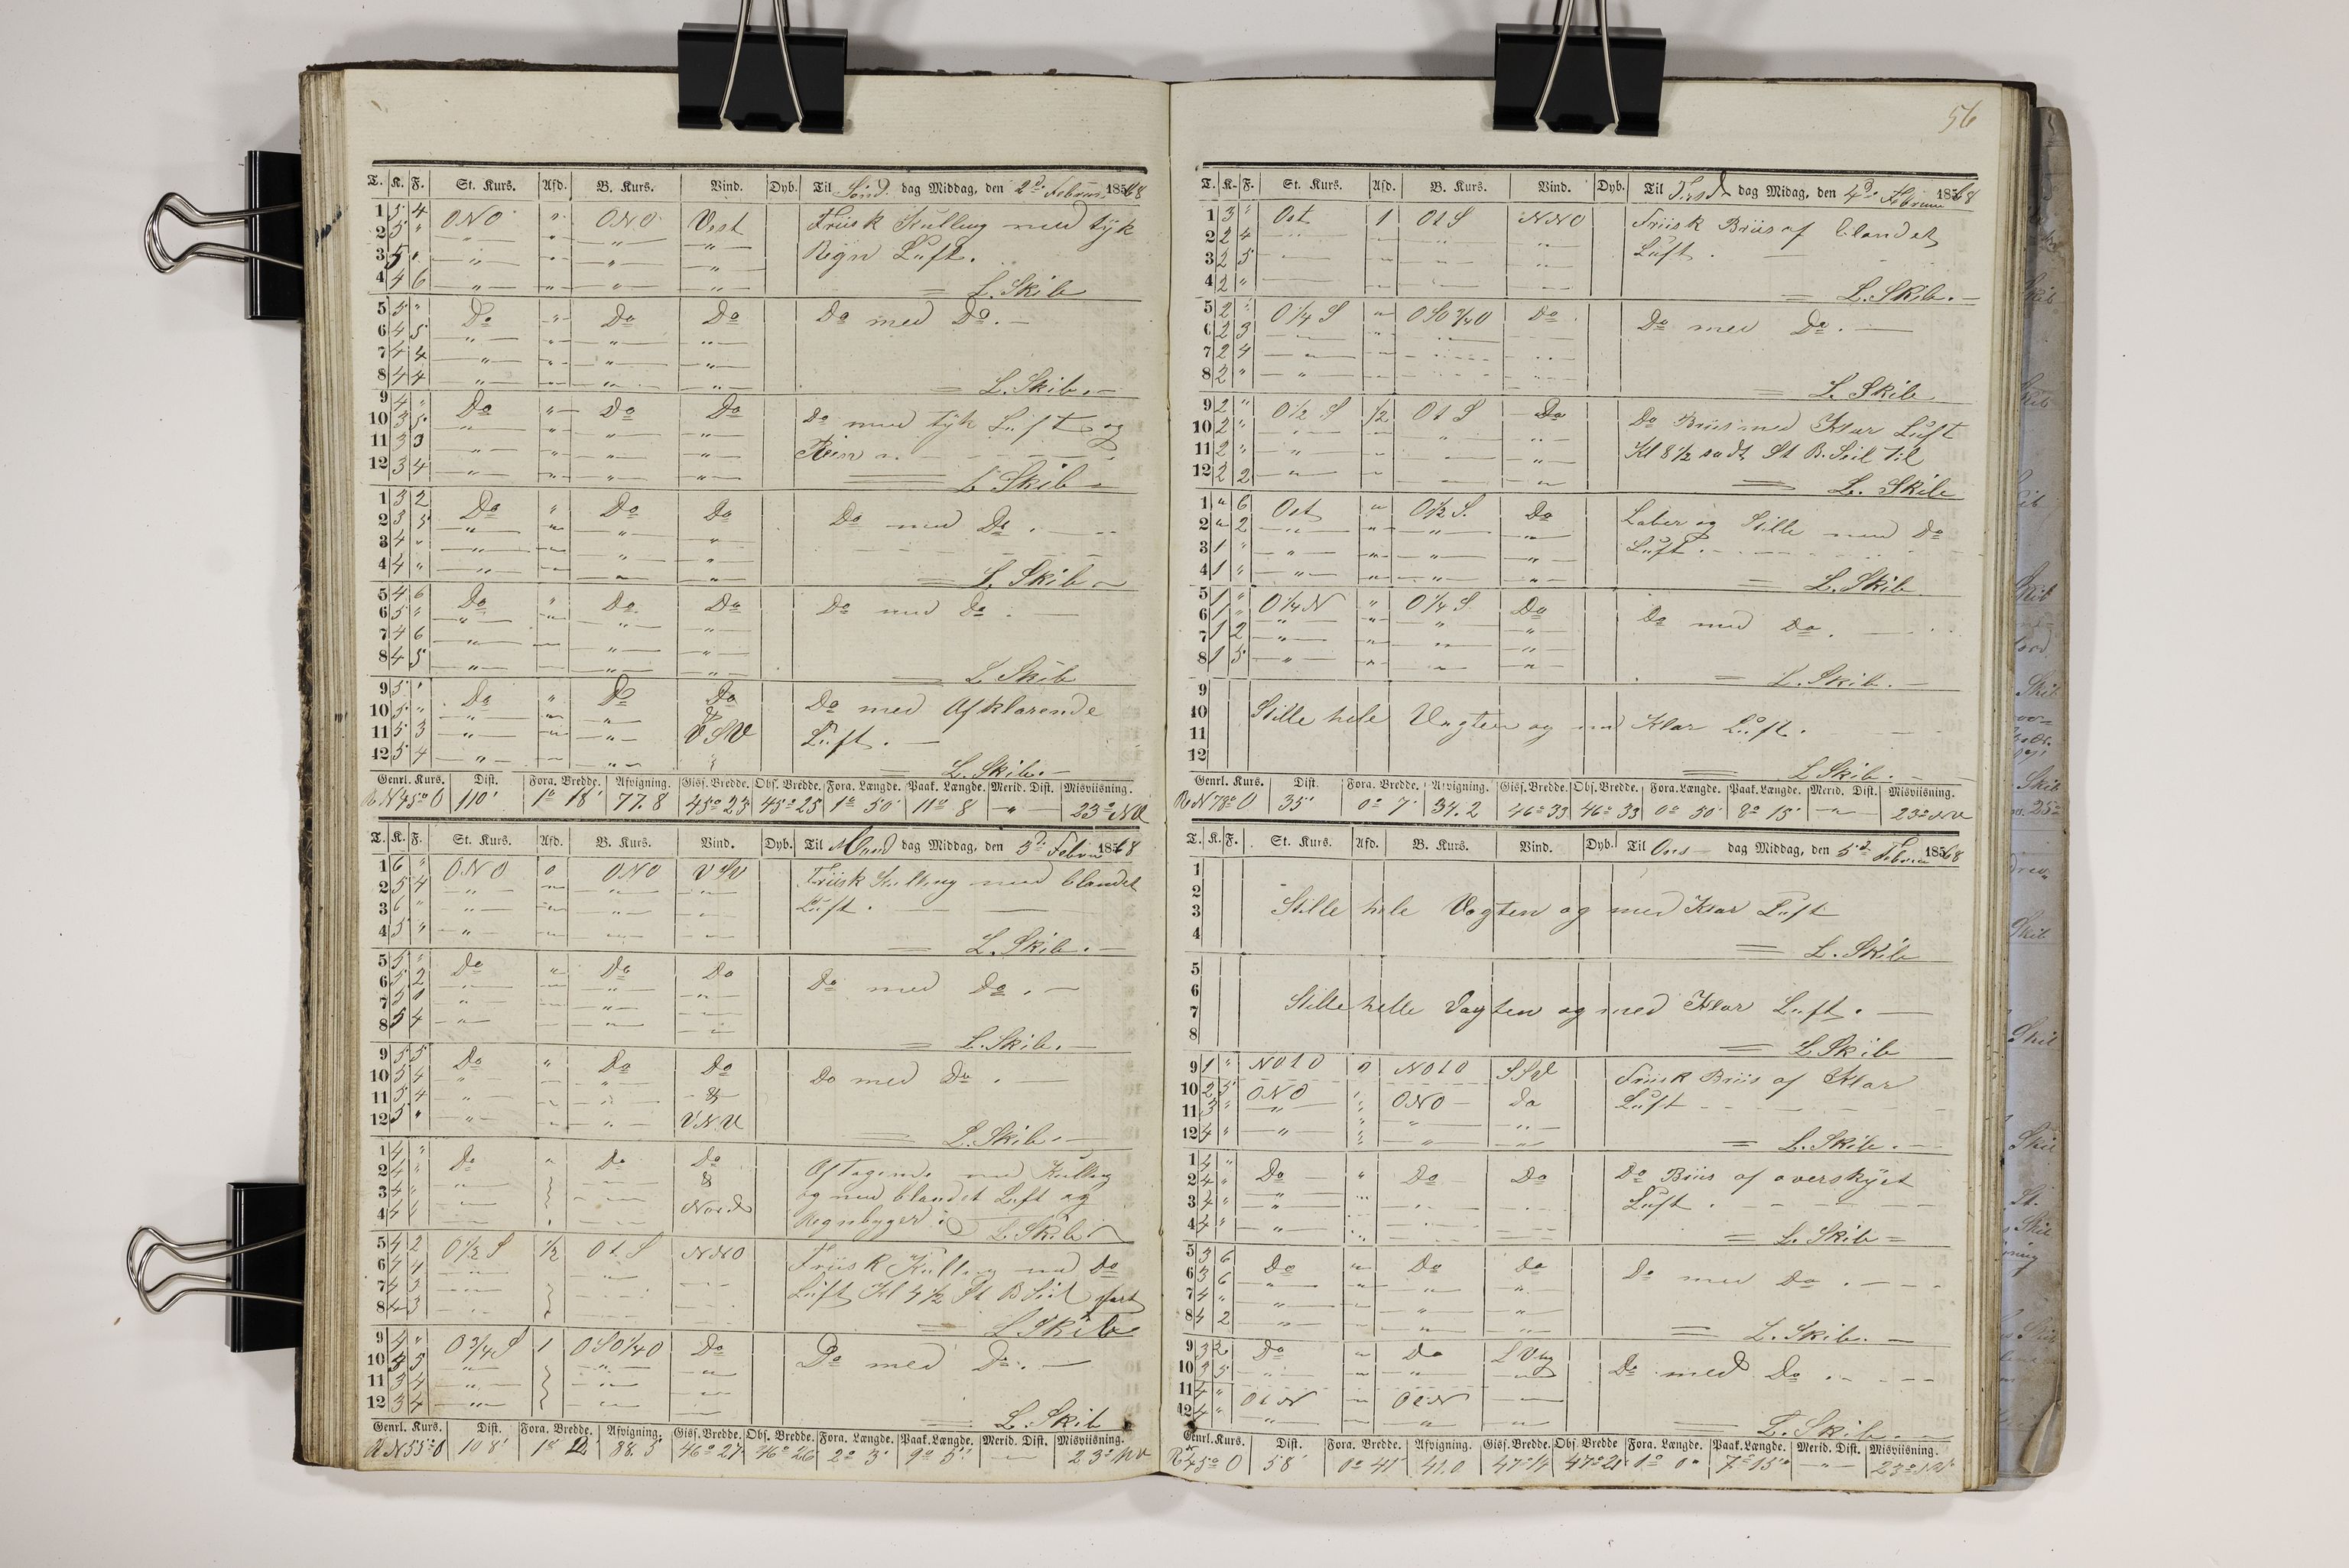 56
T. K. F. St. Kurs. Afd. B. Kurs. Vind. Dyb. Til Sønd. dag Middag, den 2d Februar 1868
1 5 4 ONO " ONO Vest Friisk Kulling med tÿk
2 5 " Regn Luft.
3 5 "
4 4 6 L. Skib
5 5 " Do " Do Do Do med Do.
6 4 5
7 4 4
8 4 4 L. Skib.
9 4 " Do " Do Do Do med tÿk Luft og
10 3 5
11 3 3
12 3 4 L. Skib
1 3 2 Do " Do Do Do med Do.
2 3 5
3 4 "
4 4 " L. Skib
5 4 6 Do " Do Do Do med Do.
6 5 "
7 4 6
8 4 5 L. Skib
9 5 " Do " Do Do Do med Afklarende
10 5 "
11 5 3 VSV Luft.
12 5 4 L. Skib.
Genrl. Kurs. Dist. Fora. Bredde. Afvigning. Giss. Bredde. Obs. Bredde. Fora. Længde. Paak. Længde. Merid. Dist. Misviisning.
R N45° O 110' 1° 18' 77.8 45° 23 45° 25 1° 50' 11° 8 " 23° NV
T. K. F. St. Kurs. Afd. B. Kurs. Vind. Dyb. Til Mand dag Middag, den 3d Febru 1868
1 6 " ONO 0 ONO VSV Friisk Kulling med blandet
2 5 4
3 6 " Luft.
4 5 " L. Skib.
5 5 " Do " Do Do Do med Do.
6 5 2
7 5 1
8 5 4 L. Skib.
9 5 5 Do " Do Do Do med Do.
10 5 4
11 5 4 &
12 5 " VNV L. Skib.
1 4 " Do " Do Do Aftagende med Kulling
2 4 " &
3 4 " Nord og med blandet Luft og
4 4 " Regnbyger L. Skib
5 4 2 O½S ½ O t S NNO Friisk Kulling med Do
6 4 4
7 4 3 Luft Kl 4½ St B Seil fast
8 4 3 L Skib
9 4 " O¾S 1 OSO¼O Do Do med Do.
10 4 5
11 3 4
12 3 4 L. Skib
Genrl. Kurs. Dist. Fora. Bredde. Afvigning. Giss. Bredde. Obs. Bredde. Fora. Længde. Paak. Længde. Merid. Dist. Misviisning.
R N55° O 108' 1° 2' 88.5 46° 27 46° 26 2° 3' 9° 5' 23° NV
T. K. F. St. Kurs. Afd. B. Kurs. Vind. Dyb. Til Tirsd dag Midag, den 4d Februar 1868
1 3 " Ost 1 O t S NNO Friisk Briis af blandet
2 2 4
3 2 5 Luft.
4 2 " L. Skib.
5 2 " O¼S " OSO¾O Do Do med Do.
6 2 3
7 2 4
8 2 " L. Skib
9 2 " O½S ½ O t S Do Do Briis med Klar Luft
10 2 "
11 2 " Kl 8½ sadt St B. Seil til
12 2 2 L. Skib
1 " 6 Ost " O½S. Do Laber og Stille med Do
2 " 2
3 1 " Luft.
4 1 " L. Skib
5 1 " O¼N " O¼S Do
6 1 " Do med Do.
7 1 2
8 1 5 L. Skib.
9
10 Stille hele Vagten og med Klar Luft.
11
12 L Skib.
Genrl. Kurs. Dist. Fora. Bredde. Afvigning. Giss. Bredde. Obs. Bredde. Fora. Længde. Paak. Længde. Merid. Dist. Misviisning.
R N78° O 35' 0° 7' 34.2 46° 33 46° 33 0° 50' 8° 15' " 23° NV
T. K. F. St. Kurs. Afd. B. Kurs. Vind. Dyb. Til Ons dag Middag, den 5d Februar 1868
1
2
3 Stille hele Vagten og med Klar Luft
4 L. Skib
5
6
7 Stille helle Vagten og med Klar Luft.
8 L Skib
9 1 " NO t O 0 NO t O SSV Friisk Briis af Klar
10 2 5 ONO ONO Do
11 3 " Luft
12 4 " L. Skib.
1 4 " Do " Do Do Do Briis af overskÿet
2 4 "
3 4 " Luft.
4 4 " L. Skib
5 3 6 Do " Do Do Do med Do.
6 3 6
7 4 "
8 4 2 L. Skib.
9 3 2 Do " Do Do med Do.
10 3 5
11 4 " O t N O t N
12 4 " L. Skib.
Genrl. Kurs. Dist. Fora. Bredde. Afvigning. Giss. Bredde. Obs. Bredde Fora. Længde. Paak. Længde. Merid. Dist. Misviisning.
R N 45° O 58' 0° 41' 41.0 47° 14 47° 21 1° 0" 7° 15" " 23° NV